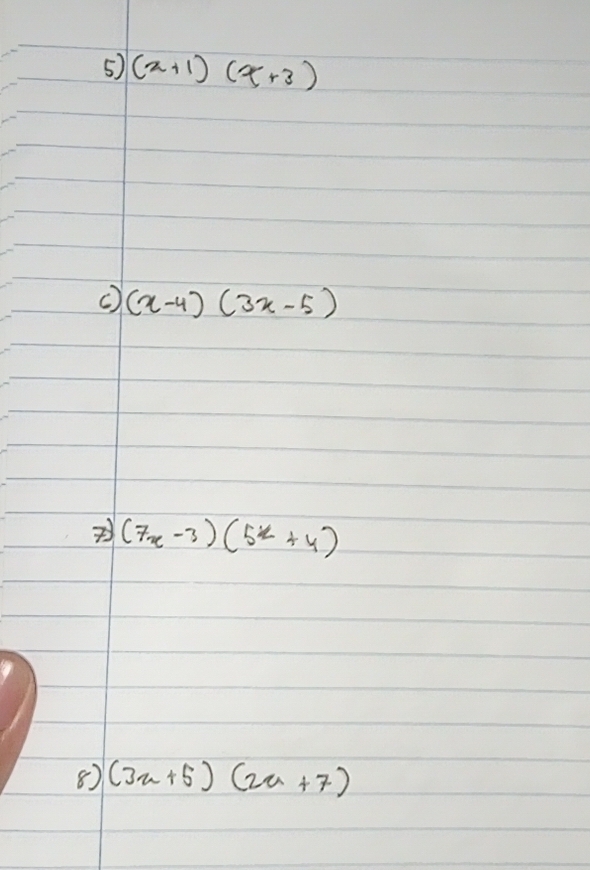 5) (x+1) (x+3)
6) (x-4) (3x-5)
7) (7x-3) (5x+4)
8) (3x+5) (2x+7)